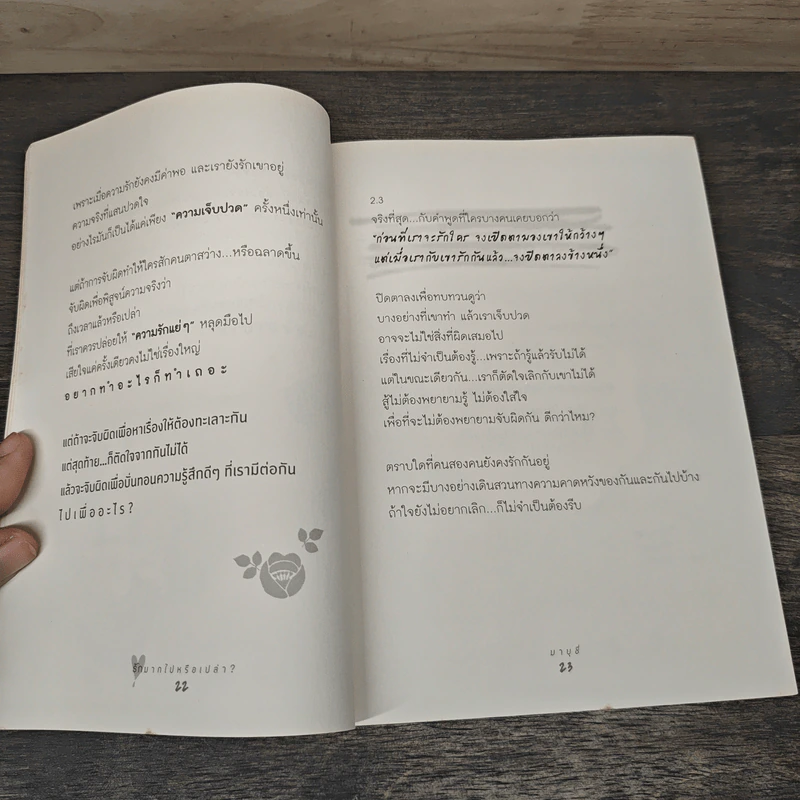 เพราะเมื่อความรักยังคงมีค่าพอ และเรายังรักเขาอยู่
ความจริงที่แสนปวดใจ
อย่างไรมันก็เป็นได้แค่เพียง "ความเจ็บปวด" ครั้งหนึ่งเท่านั้น
แต่ถ้าการจับผิดทำให้ใครสักคนตาสว่าง...หรือฉลาดขึ้น
จับผิดเพื่อพิสูจน์ความจริงว่า
ถึงเวลาแล้วหรือเปล่า
ที่เราควรปล่อยให้ "ความรักแย่ๆ" หลุดมือไป
เสียใจแค่ครั้งเดียวคงไม่ใช่เรื่องใหญ่
อยากทำอะไรก็ทำเถอะ
แต่ถ้าจะจับผิดเพื่อหาเรื่องให้ต้องทะเลาะกัน
แต่สุดท้าย...ก็ตัดใจจากกันไม่ได้
แล้วจะจับผิดเพื่อบั่นทอนความรู้สึกดีๆ ที่เรามีต่อกัน
ไปเพื่ออะไร?
รักมากไปหรือเปล่า?
22
2.3
จริงที่สุด...กับคำพูดที่ใครบางคนเคยบอกว่า
"ก่อนที่เราจะรักใคร จงเปิดตามองเขาให้กว้างๆ
แต่เมื่อเรากับเขารักกันแล้ว...จงปิดตาลงข้างหนึ่ง"
ปิดตาลงเพื่อทบทวนดูว่า
บางอย่างที่เขาทำ แล้วเราเจ็บปวด
อาจจะไม่ใช่สิ่งที่ผิดเสมอไป
เรื่องที่ไม่จำเป็นต้องรู้...เพราะถ้ารู้แล้วรับไม่ได้
แต่ในขณะเดียวกัน...เราก็ตัดใจเลิกกับเขาไม่ได้
สู้ไม่ต้องพยายามรู้ ไม่ต้องใส่ใจ
เพื่อที่จะไม่ต้องพยายามจับผิดกัน ดีกว่าไหม?
ตราบใดที่คนสองคนยังคงรักกันอยู่
หากจะมีบางอย่างเดินสวนทางความคาดหวังของกันและกันไปบ้าง
ถ้าใจยังไม่อยากเลิก...ก็ไม่จำเป็นต้องรีบ
มาบุชี่
23